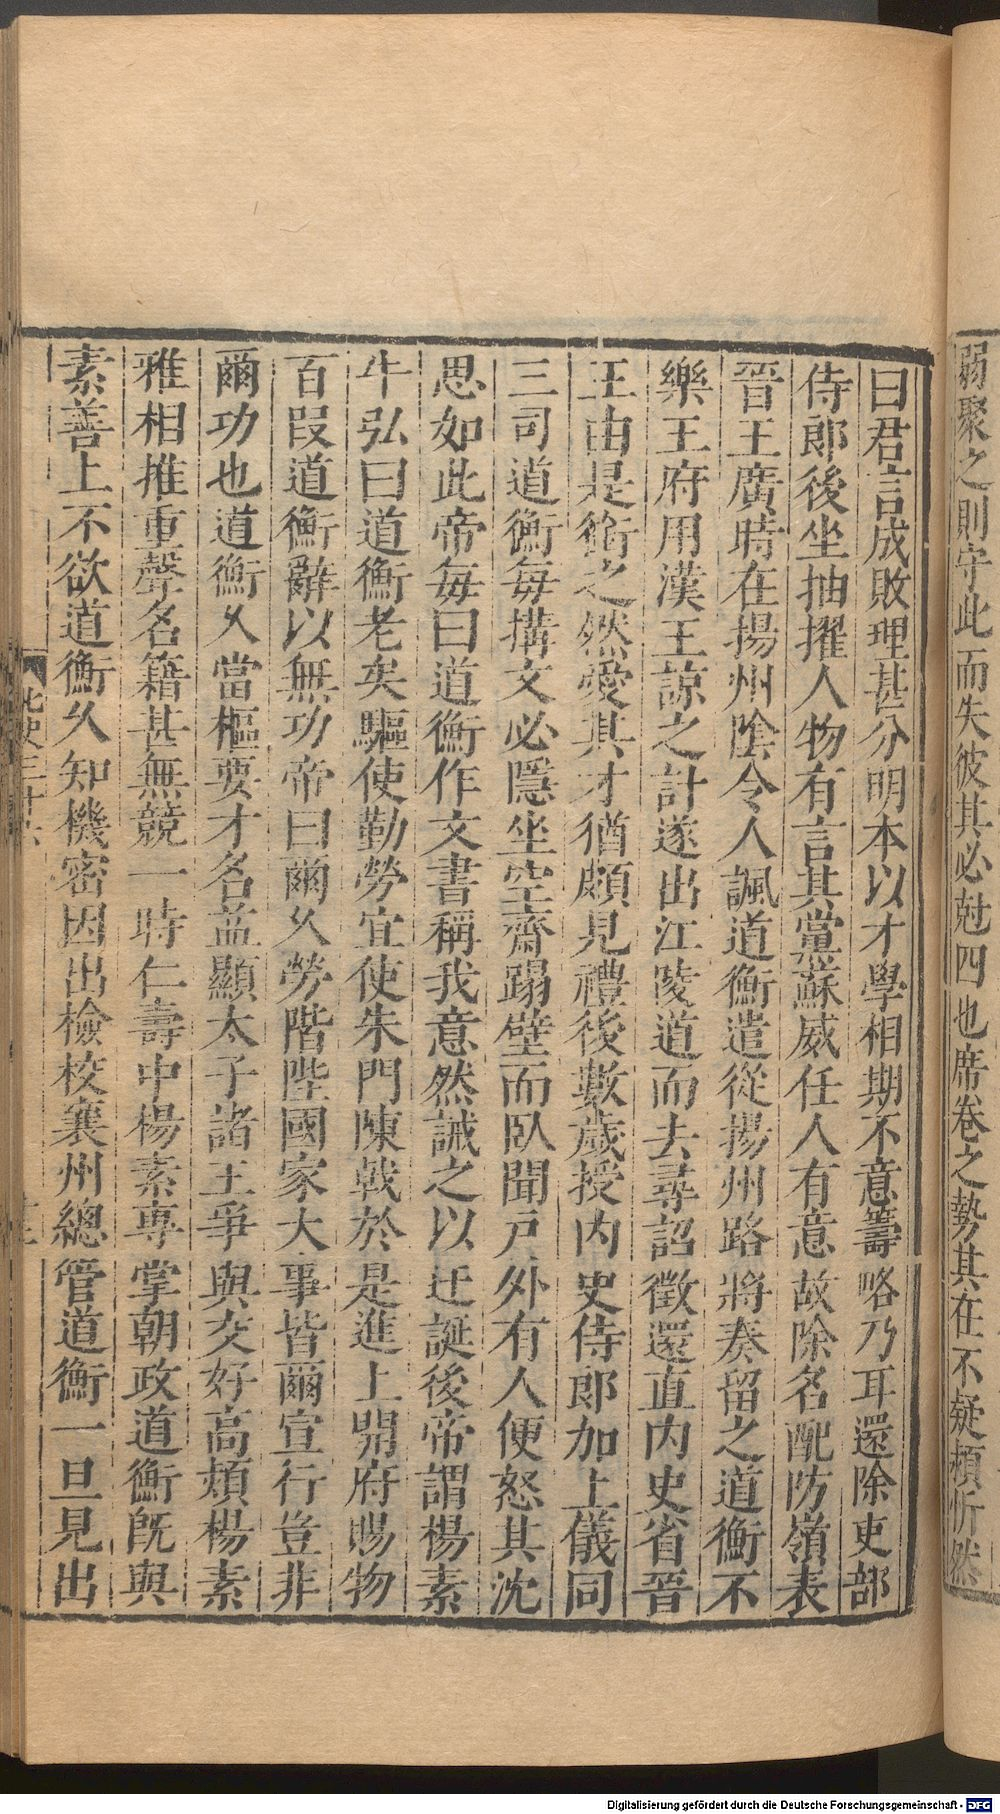 弱聚之則守此而失彼其必尅四也席卷之勢其在不疑熲忻然
曰君言成敗理甚分明本以才學相期不意籌略乃耳還除吏部
侍郎後坐抽擢人物有言其黨蘇威任人有意故除名配防嶺表
晉王廣時在揚州陰令人諷道衡遣從揚州路將奏留之道衡不
樂王府用漢王諒之計遂出江陵道而去尋詔徵還直内史省晉
王由是銜之然愛其才猶頗見禮後數歲授内史侍郎加上儀同
三司道衡每搆文必隱坐空齋蹋壁而臥聞戸外有人便怒其沈
思如此帝每曰道衡作文書稱我意然誡之以迂誕後帝謂楊素
牛弘曰道衡老矣驅使勤勞宜使朱門陳戟於是進上開府賜物
百叚道衡辭以無功帝曰爾久勞階陛國家大事皆爾宣行豈非
爾功也道衡久當樞要才名益顯太子諸王爭與交好高熲楊素
雅相推重聲名籍甚無競一時仁壽中楊素專掌朝政道衡旣與
素善上不欲道衡久知機密因出檢校襄州總管道衡一旦見出
北史三十六
Digitalisierung gefördert durch die Deutsche Forschungsgemeinschaft - DFG